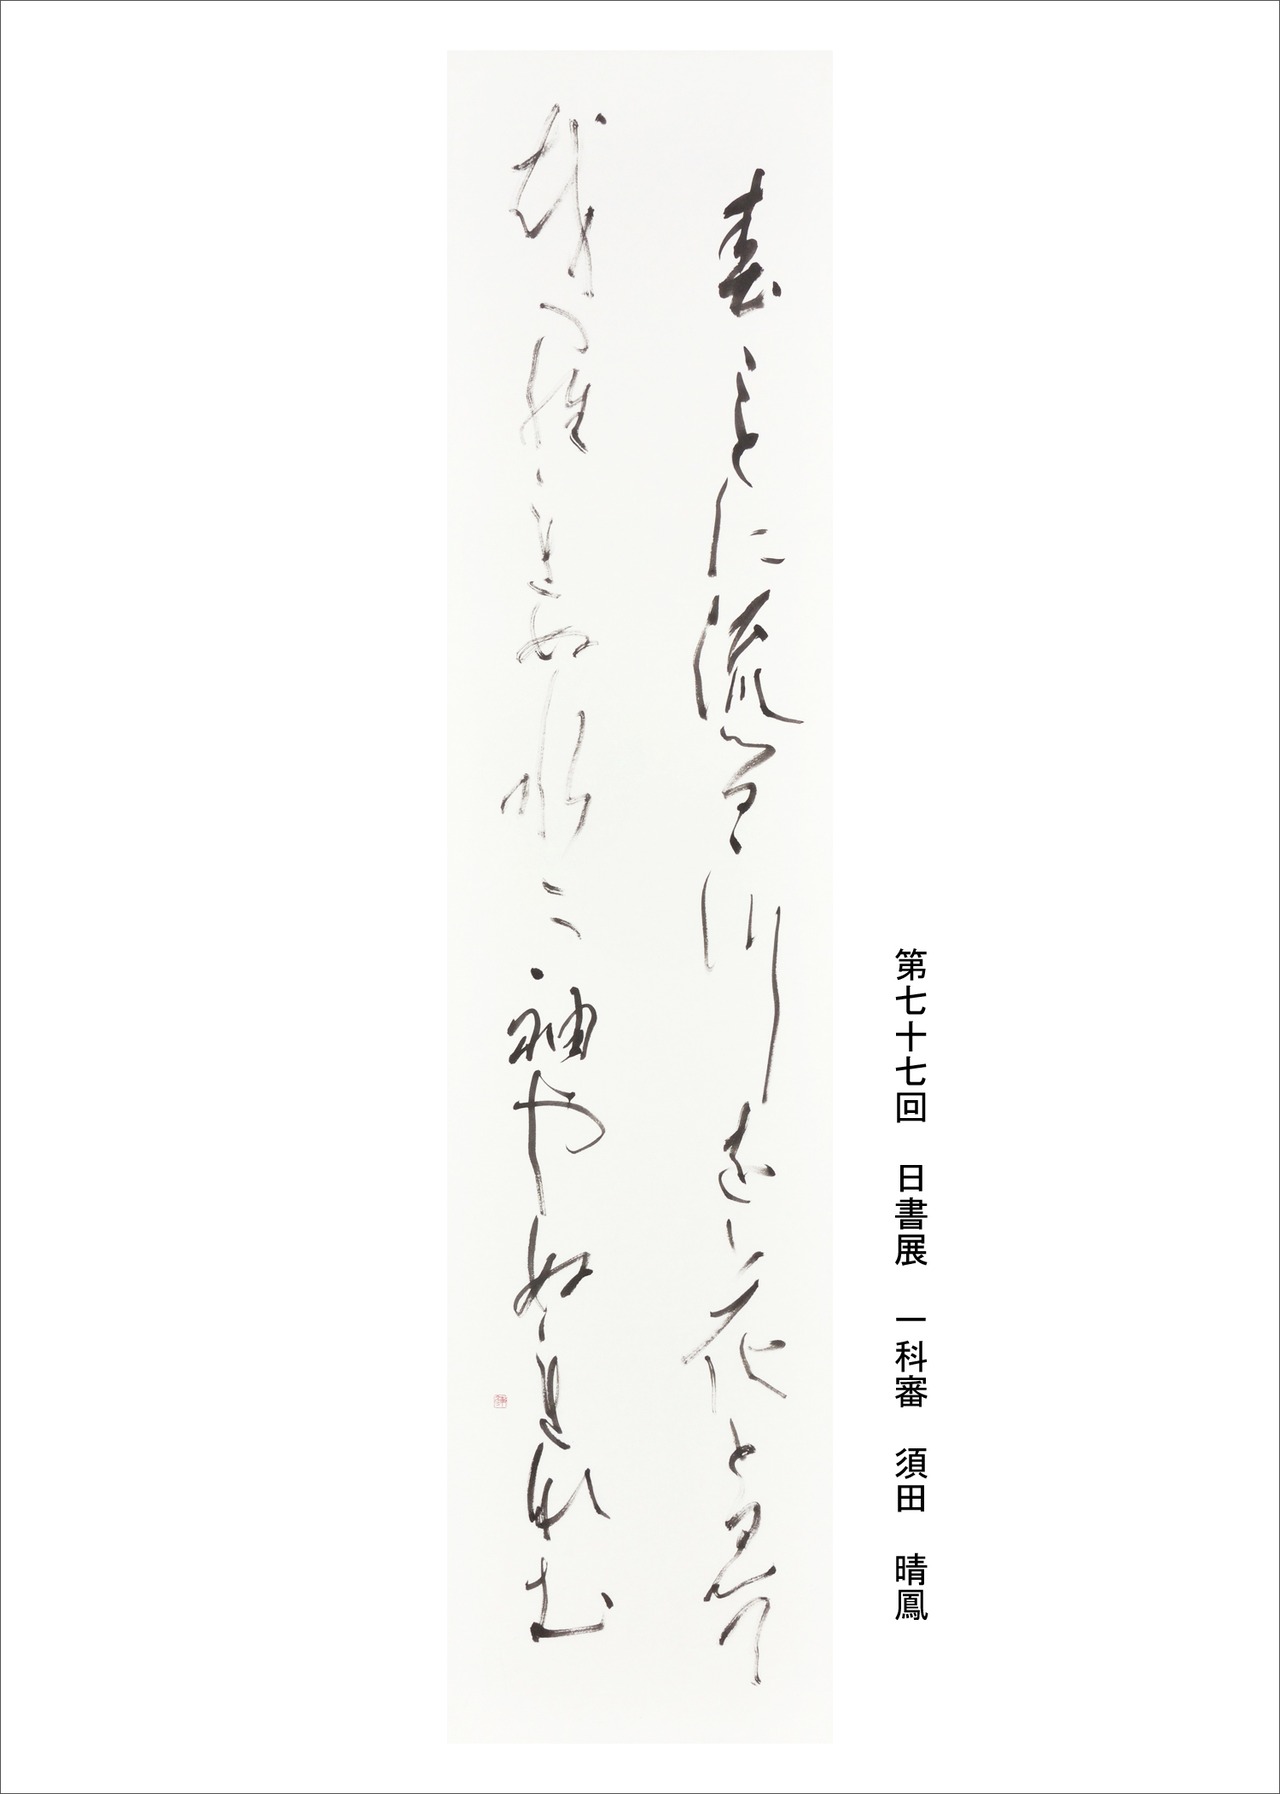 第七十七回 日書展 一科審 須田 晴鳳
春ことに流るゝ川を花と見て
をられぬ水に袖やぬれなむ